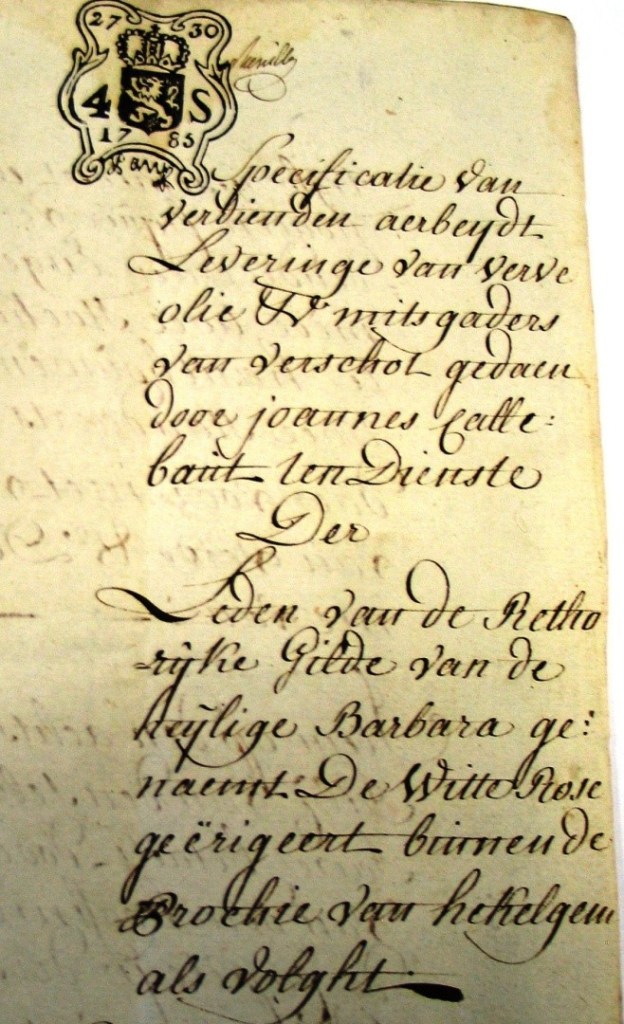 27 30
4 S
17 85
Specificatie van
verdienden aerbeydt
Leveringe van verve
olie & mitsgaders
van verschot gedaen
door joannes Calle:
baut ten Dienste
Der
Leden van de Retho
rijke Gilde van de
heÿlige Barbara ge:
naemt De Witte Rose
geërigeert binnen de
Prochie van hekelgem
als volght